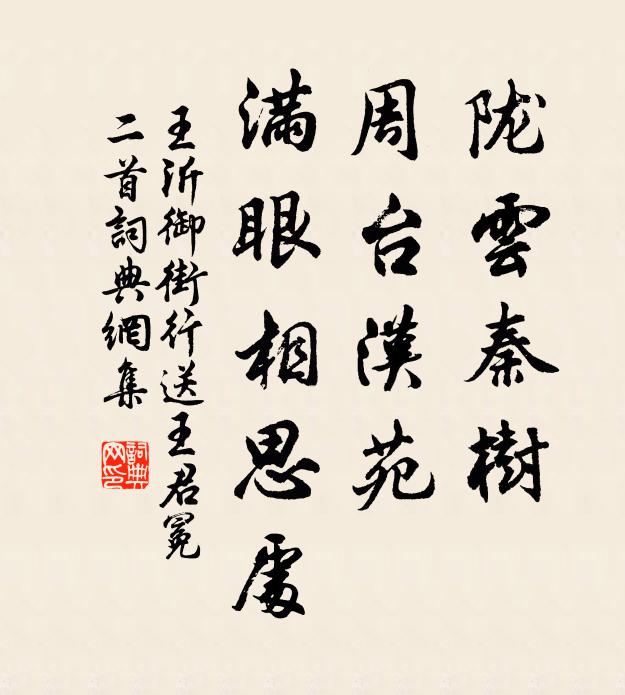 陇雲秦樹
周台漢苑
滿眼相思處
王沂御街行送王君冕
二首詞典網集
詞典网印